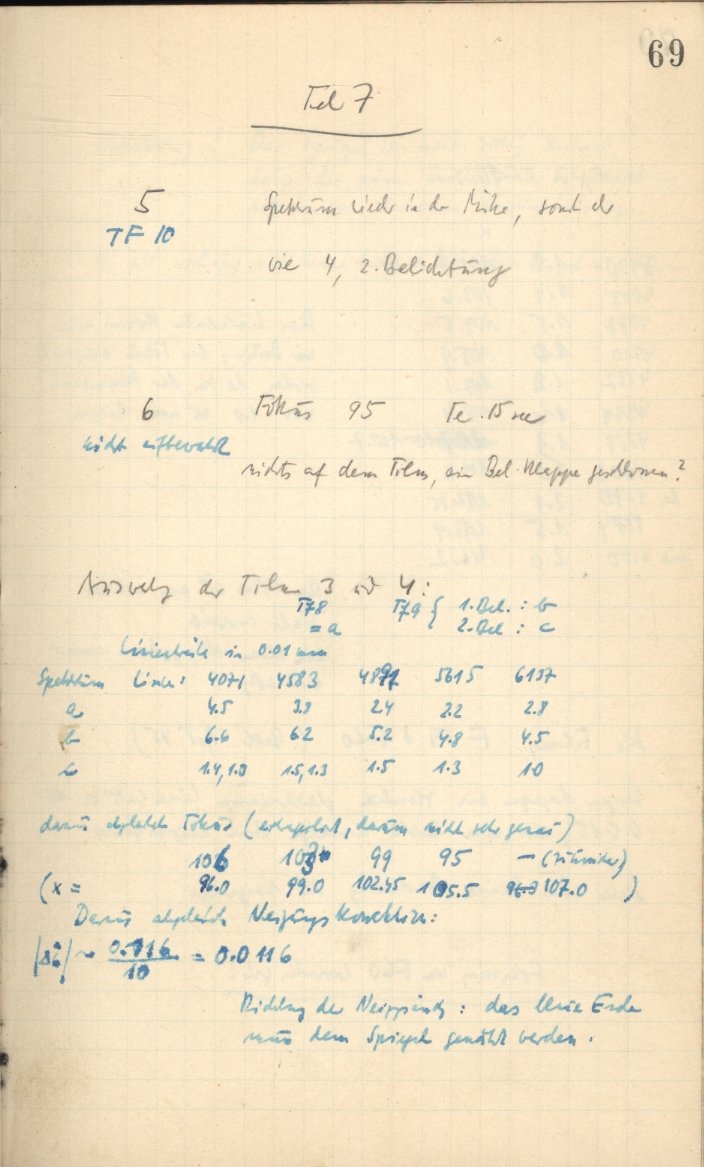 69
Tel 7
5 Spektrum wieder in der Mitte, sonst
TF 10
wie 4, 2. Belichtung
6 Fokus 95 Te. 15 sec
nicht aufbewahrt
nichts auf dem Film, Bel. Klappe geschlossen?
der Filme 3 und 4:
T78 T79 { 1. Bel. : b
= a 2. Bel : c
Linienbreite in 0.01 mm
Spektrum Linie: 4071 4583 4891 5615 6137
a 4.5 3.8 2.4 2.2 2.8
b 6.6 6.2 5.2 4.8 4.5
c 1.4, 1.3 1.5, 1.3 1.5 1.3 1.0
daraus abgeleitet Fokus (extrapoliert, darum nicht sehr genau)
106 103 99 95 —
(x = 96.0 99.0 102.45 105.5 107.0 )
Daraus abgeleitet Neigungskorrektion:
= 0.0116
10
Richtung der : das blaue Ende
muss dem Spiegel genähert werden.